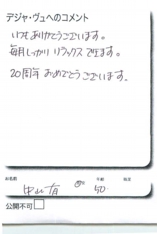 デジャ・ヴュへのコメント
いつもありがとうございます。
毎月しっかりリラックスできてます。
20周年おめでとうございます。
お名前
年齢
中山有
50
公開不可